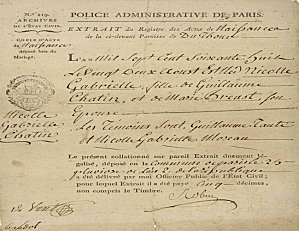 POLICE ADMINISTRATIVE DE PARIS.
EXTRAIT du Registre des Actes de Naissances
de la ci-devant Paroisse de
ARCHIVES
DE L'ÉTAT CIVIL.
COPIE D'ACTE
de Naissance
déposé lors du
Mariage.
L'an Mil Sept Cent Soixante huit
Le Vingt Deux Aoust Est Née Nicolle
Gabrielle, fille de Guillaume
Chatin, et de Marie son
Epouse
Les Témoins Sont, Guillaume
et Nicolle Gabrielle Moreau
Nicolle
Gabrielle
Chatin
Le présent collationné sur pareil Extrait duement
galisé, déposé en la Commune de
pluviose de l'an 2 de la République
été délivré par moi Officier Public de l'Etat Civil;
pour lequel Extrait il a été payé cinq décimes,
non compris le Timbre.